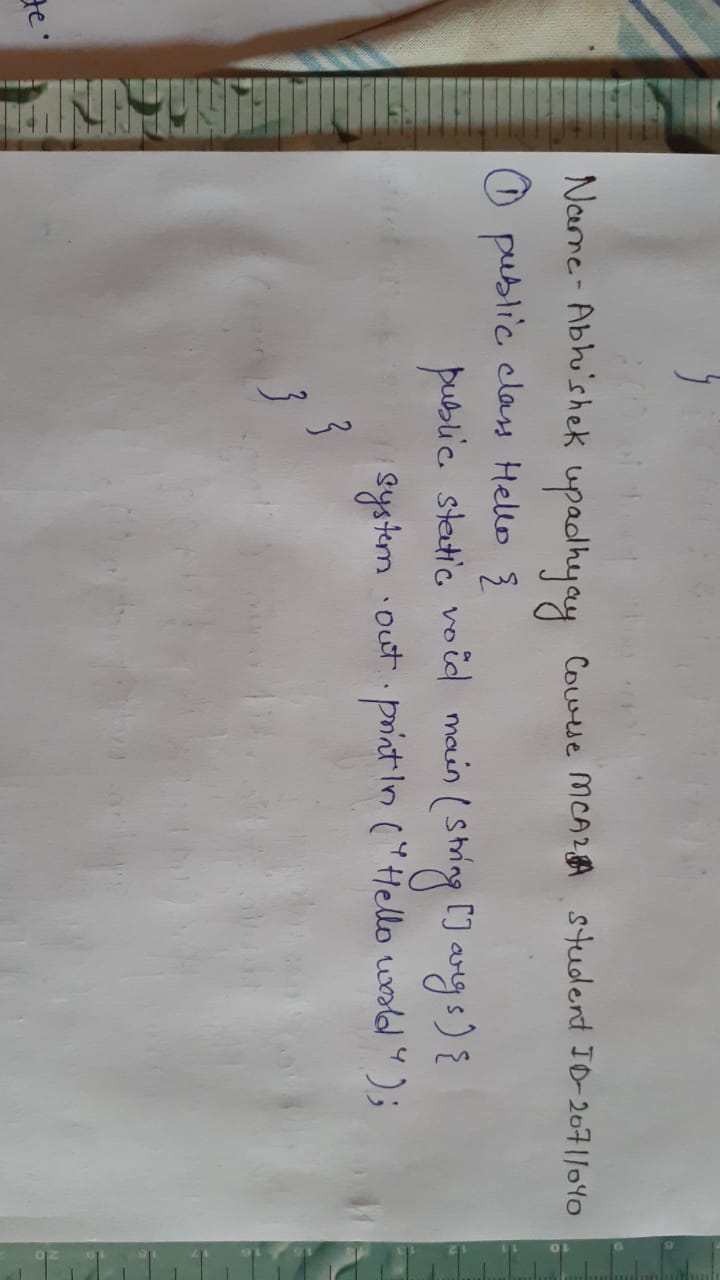 }
Name- Abhishek upadhyay Course MCA2A student ID-20711040
① public class Hello {
public static void main (string [] args) {
system . out . println ("Hello world");
}
}